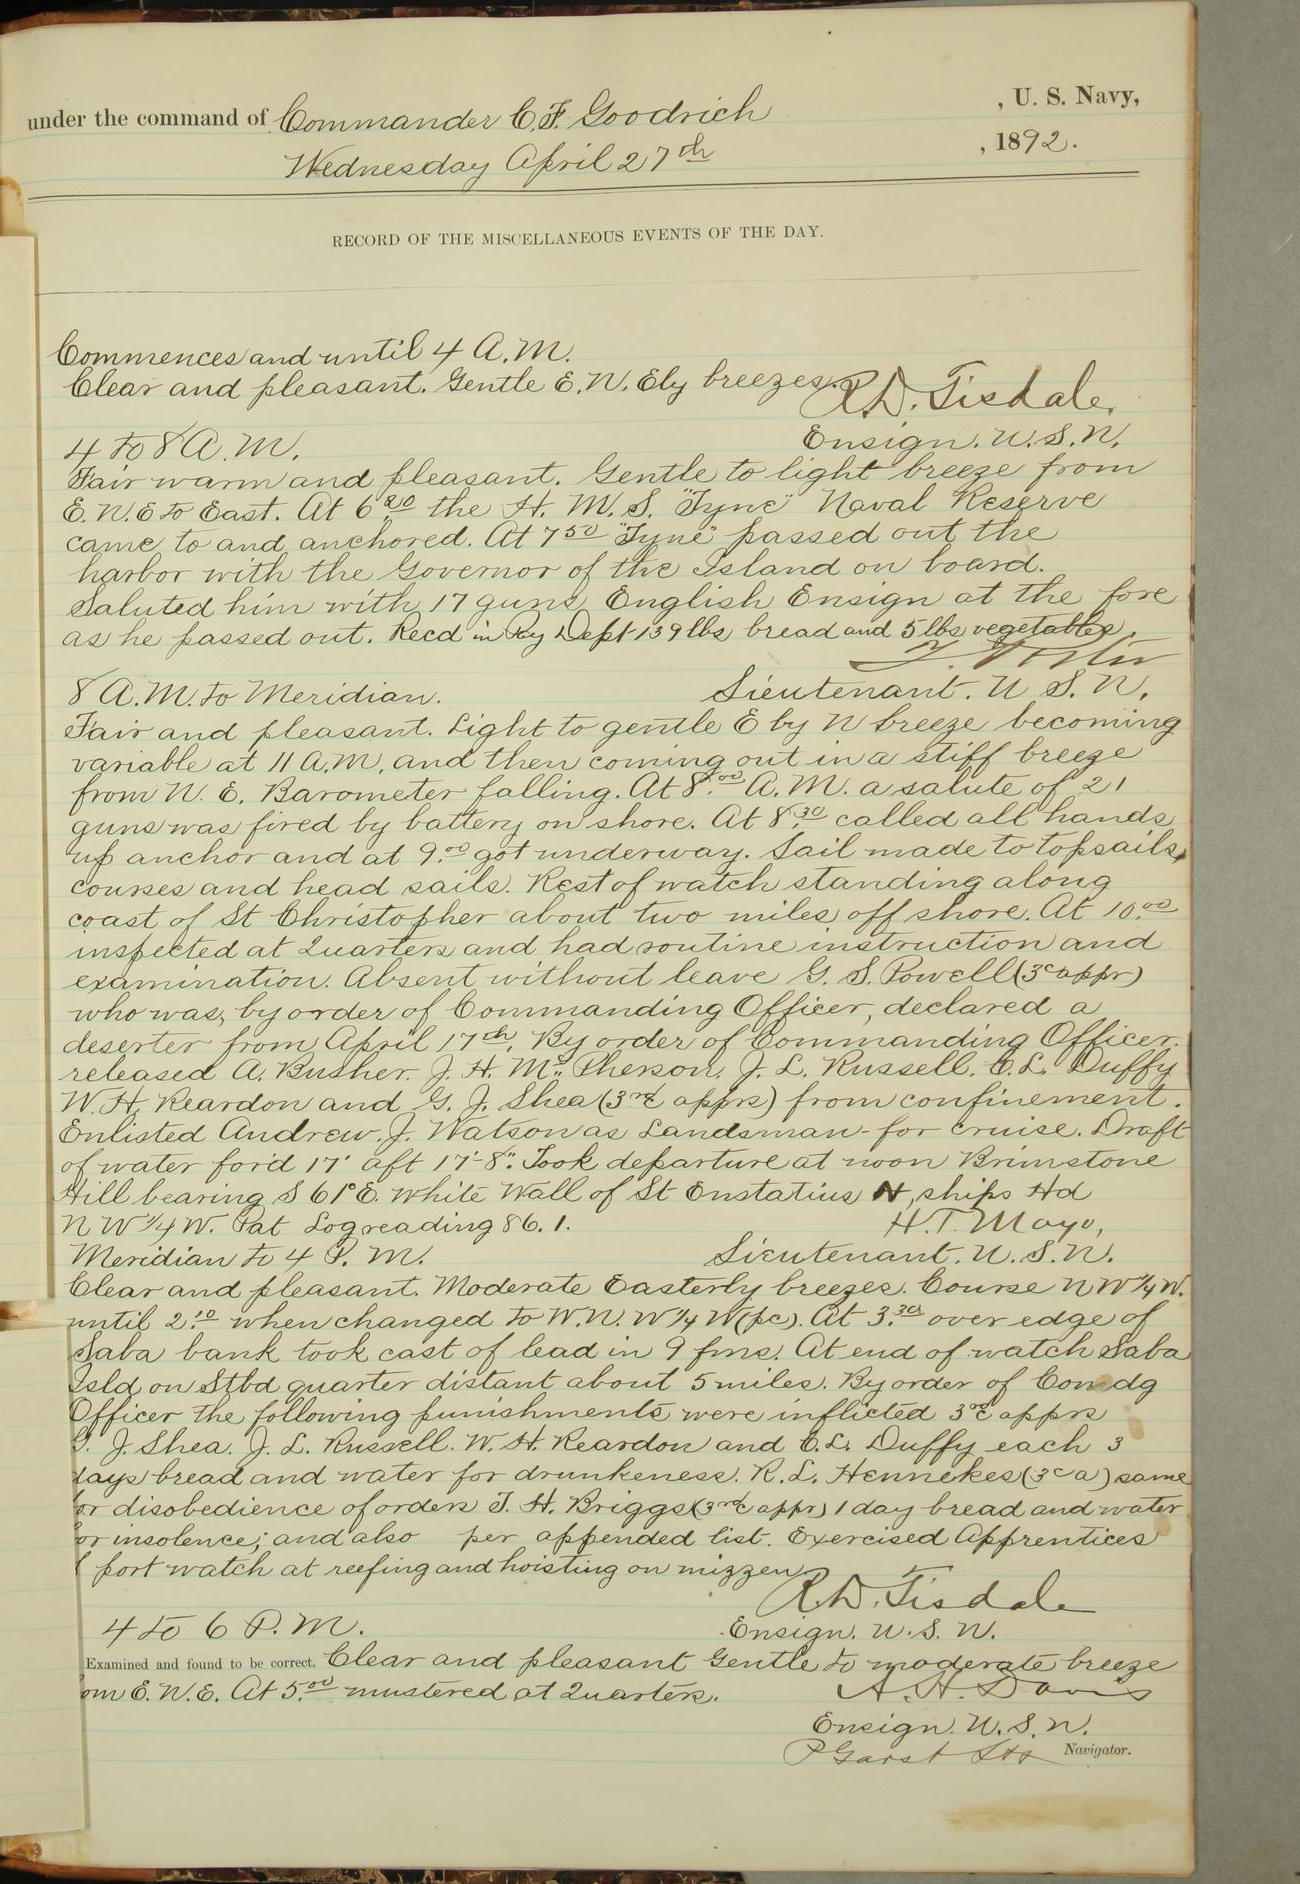 under the command of Commander C. F. Goodrich , U. S. Navy,
Wednesday April 27th , 1892.
RECORD OF THE MISCELLANEOUS EVENTS OF THE DAY.
Commences and until 4 A.M.
Clear and pleasant. Gentle E.N.Ely breezes.
R.D. Tisdale.
4 to 8 A.M. Ensign. U.S.N.
Fair warm and pleasant. Gentle to light breeze from
E.N.E to East. At 6.20 the H. M. S. "Tyne" Naval Reserve
came to and anchored. At 7 50 "Tyne" passed out the
harbor with the Governor of the Island on board.
Saluted him with 17 guns English Ensign at the fore
as he passed out. Recd in Pay Dept 139 lbs bread and 5 lbs vegetables.
8 A.M. to Meridian. Lieutenant. U S. N.
Fair and pleasant. Light to gentle E by N breeze becoming
variable at 11 A.M. and then coming out in a stiff breeze
from N. E. Barometer falling. At 8.00 A.M. a salute of 21
guns was fired by battery on shore. At 8.30 called all hands
up anchor and at 9.00 got underway. Sail made to topsails,
courses and head sails. Rest of watch standing along
coast of St Christopher about two miles off shore. At 10.00
inspected at Quarters and had routine instruction and
examination. Absent without leave G. S. Powell (3c appr)
who was, by order of Commanding Officer, declared a
deserter from April 17th. By order of Commanding Officer.
released A. Busher. J. H. Mc Pherson, J. L. Russell. C. L. Duffy
W. H. Reardon and G. J. Shea (3rd c apprs) from confinement.
Enlisted Andrew. J. Watson as Landsman for cruise. Draft
of water for'd 17' aft 17'-8". Took departure at noon Brimstone
Hill bearing S 61° E. White Wall of St Eustatius N, ships Hd
N W 1/4 W. Pat Log reading 86.1. H.T. Mayo,
Meridian to 4 P. M. Lieutenant. U. S. N.
Clear and pleasant. Moderate Easterly breezes. Course N W 1/4 W.
until 2.10 when changed to W.N.W 1/4 W (pc). At 3.30 over edge of
Saba bank took cast of lead in 9 fms. At end of watch Saba
Isld on Stbd quarter distant about 5 miles. By order of Comdg
Officer the following punishments were inflicted 3rd c apprs
G. J. Shea. J. L. Russell. W. H. Reardon and C. L. Duffy each 3
days bread and water for drunkeness. R. L. Hennekes (3c a) same
for disobedience of orders T. H. Briggs (3rd c appr) 1 day bread and water
for insolence; and also per appended list. Exercised Apprentices
port watch at reefing and hoisting on mizzen
R.D. Tisdale
4 to 6 P.M. Ensign. U. S. N.
Examined and found to be correct. Clear and pleasant Gentle to moderate breeze
om E.N.E. At 5.00 mustered at Quarters. A. H. Davis
Ensign. U.S.N.
P Garst Navigator.